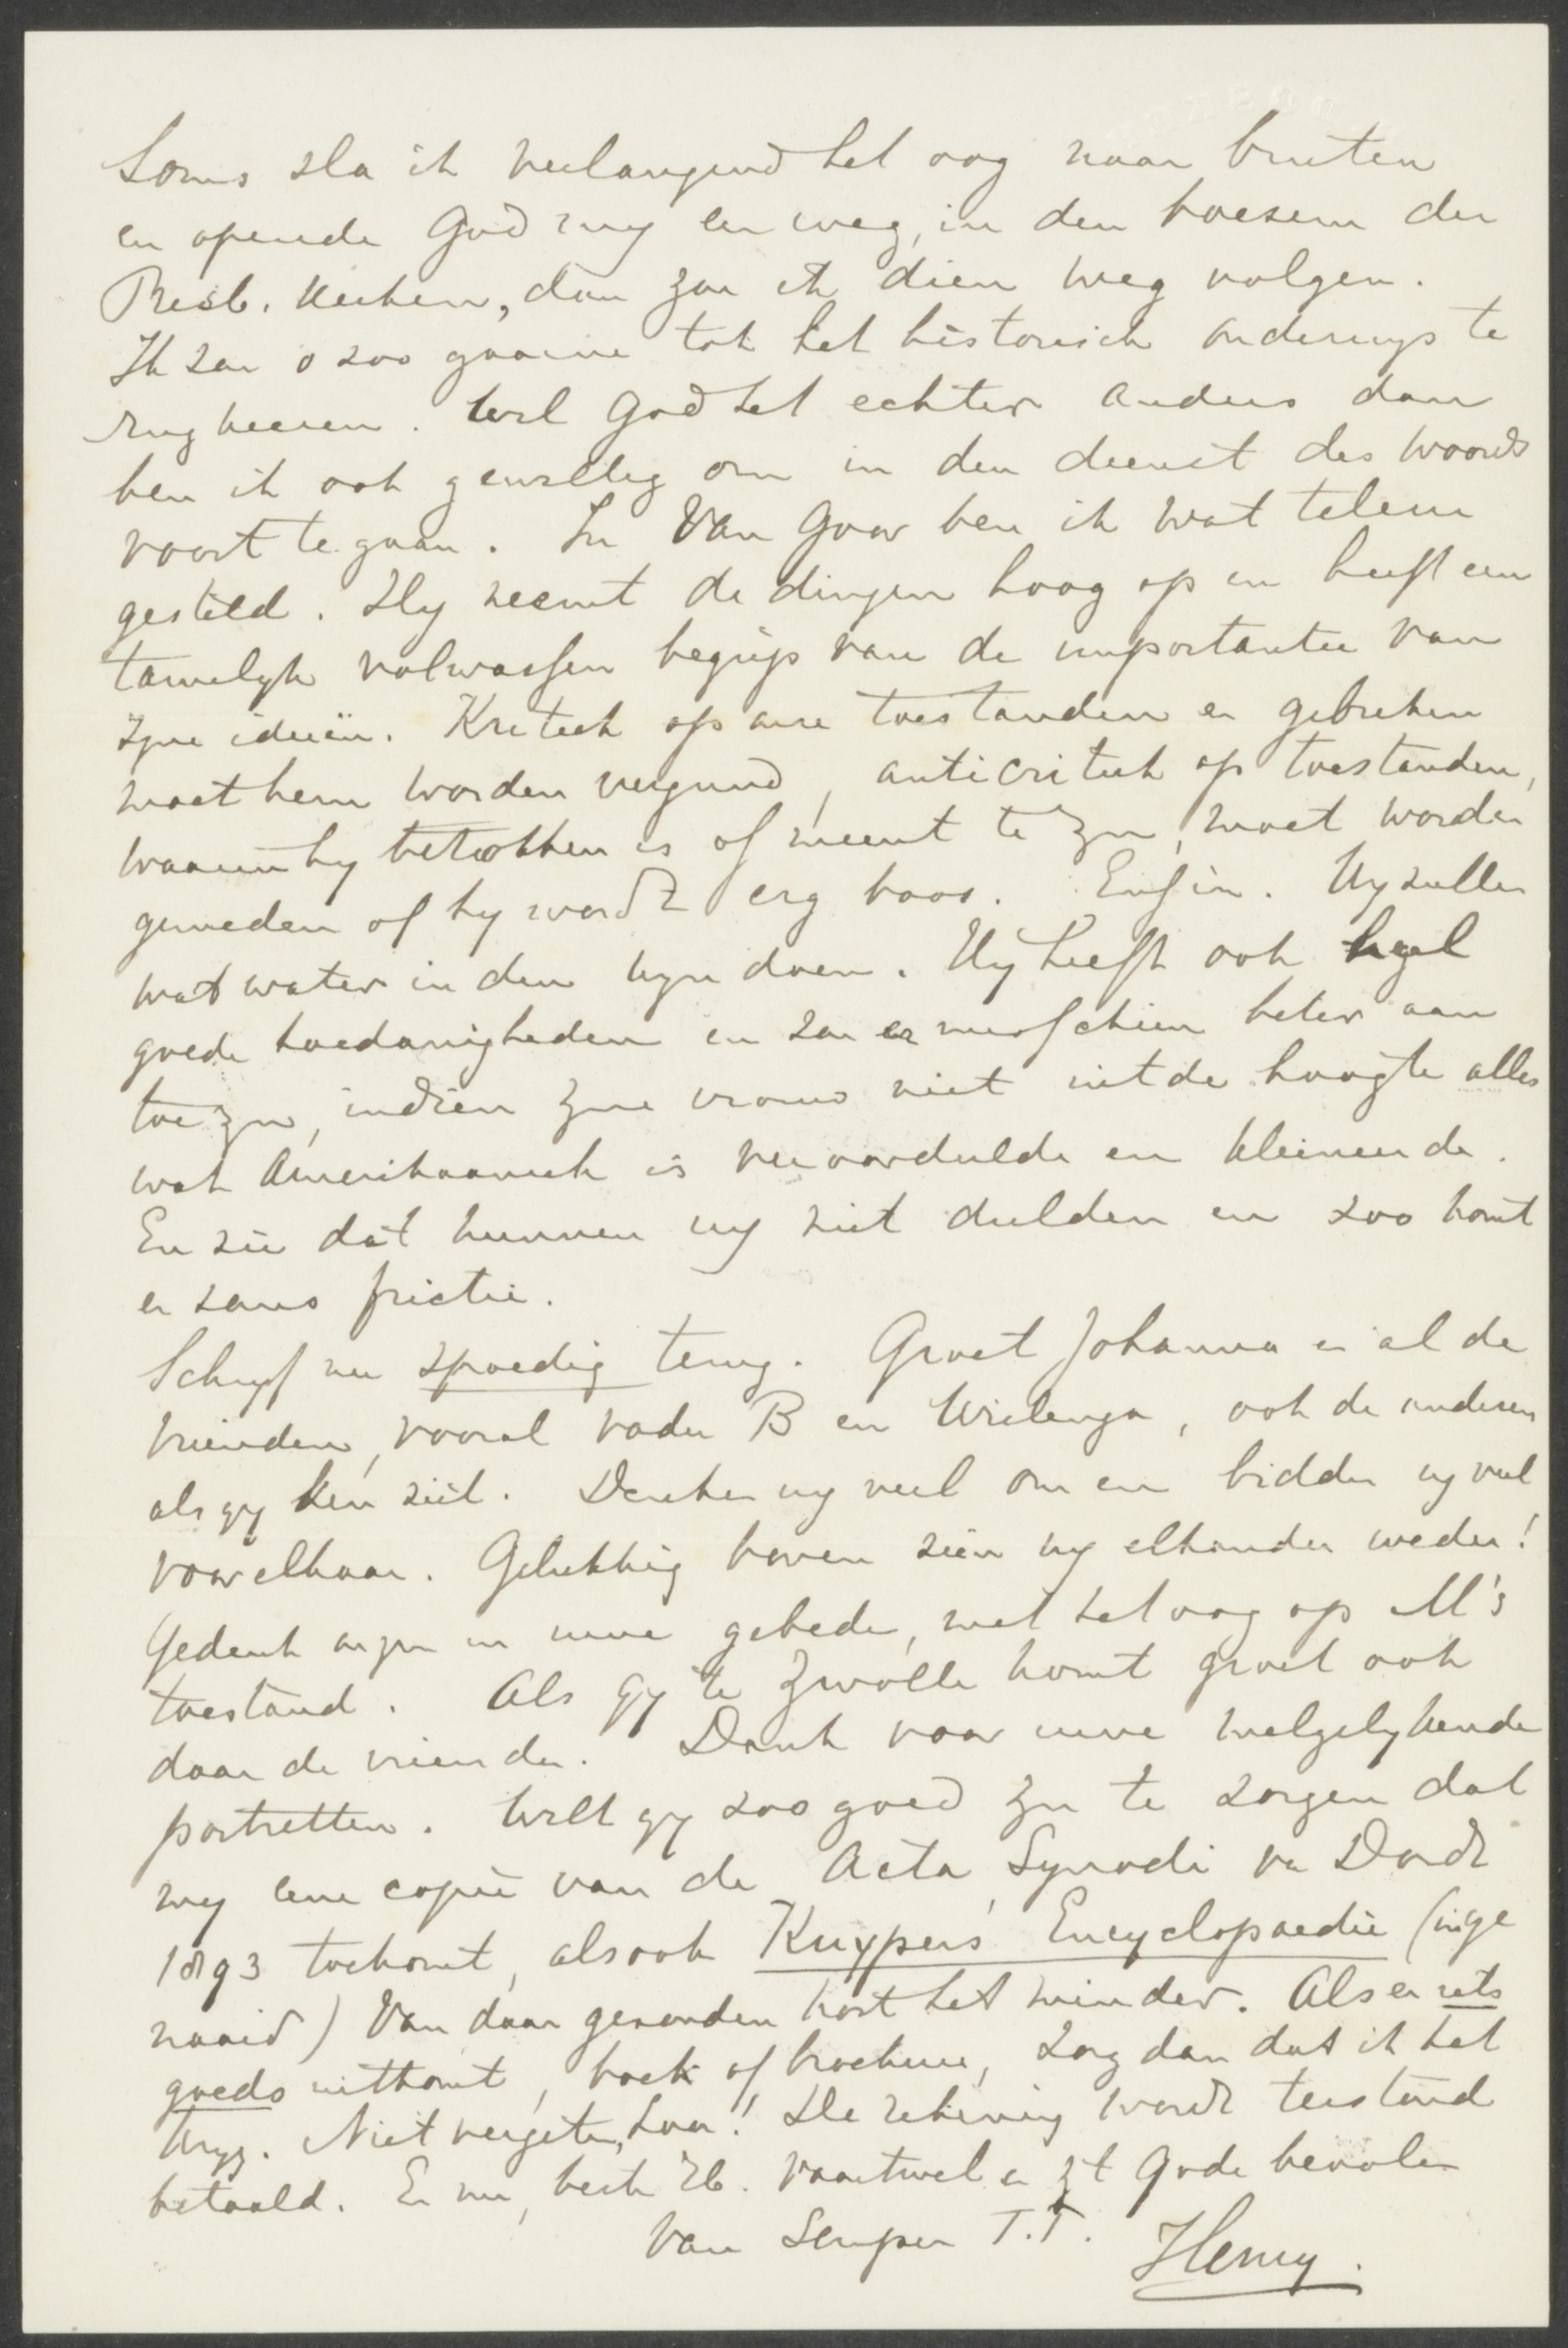 Soms sla ik verlangend het oog naar buiten
en opende God mij een weg, in den boezem der
Presb. Kerken, dan zou ik dien weg volgen.
Ik zou o zoo gaarne tot het historisch onderwijs te
rug keeren. Wil God het echter anders dan
ben ik ook gewillig om in den dienst des Woords
voort te gaan. In Van Goor ben ik wat teleur
gesteld. Hij neemt de dingen hoog op en heeft een
tamelijk volwassen begrip van de importantie van
zijne ideeën. Kritiek op onze toestanden en gebreken
moet hem worden vergund, anticritiek op toestanden,
waarin hij betrokken is of meent te zijn, moet worden
gemeden of hij wordt erg boos. Enfin. Wij zullen
wat water in den wijn doen. Hij heeft ook heel
goede hoedanigheden en zou er misschien beter aan
toe zijn, indien zijne vrouw niet uit de hoogte alles
wat Amerikaansch is veroordeelde en kleineerde.
En zie dat kunnen wij niet dulden en zoo komt
er soms frictie.
Schrijf nu spoedig terug. Groet Johanna en al de
vrienden, vooral vader B en Wielenga, ook de anderen
als gij hen ziet. Denken wij veel om en bidden wij veel
voor elkaar. Gelukkig boven zien wij elkander weder!
Gedenk onzer in uwe gebeden, met het oog op M's
toestand. Als gij te Zwolle komt groet ook
daar de vrienden. Dank voor uwe welgelijkende
portretten. Wilt gij zoo goed zijn te zorgen dat
mij eene copie van de Acta Synodi van Dordt
1893 toekomt, alsook Kuypers' Encyclopaedie (inge
naaid) Van daar gezonden kost het minder. Als er iets
goeds uitkomt, boek of brochure, zorg dan dat ik het
krijg. Niet vergeten, hoor! De rekening wordt terstond
betaald. En nu, beste Hb. vaartwel en zijt Gode bevolen
Van Semper T.T. Henry.